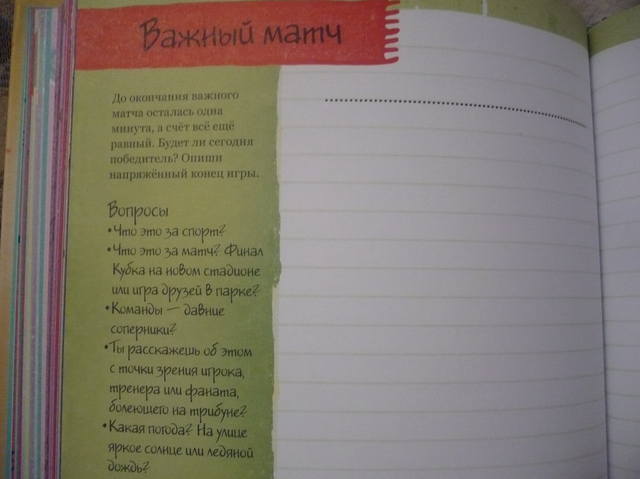 Важный матч
До окончания важного
матча осталась одна
минута, а счёт всё ещё
равный. Будет ли сегодня
победитель? Опиши
напряжённый конец игры.
Вопросы
•Что это за спорт?
•Что это за матч? Финал
Кубка на новом стадионе
или игра друзей в парке?
•Команды — давние
соперники?
•Ты расскажешь об этом
с точки зрения игрока,
тренера или фаната,
болеющего на трибуне?
•Какая погода? На улице
яркое солнце или ледяной
дождь?